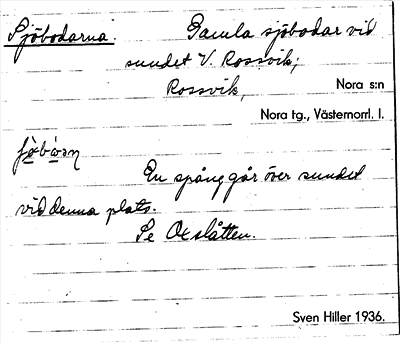 Sjöbodarna. Gamla sjöbodar vid
sundet V. Rossvik;
Rossvik, Nora s:n
Nora tg., Västernorrl. l.
En spång går över sundet
vid denna plats.
Se Oxslåtten.
Sven Hiller 1936.